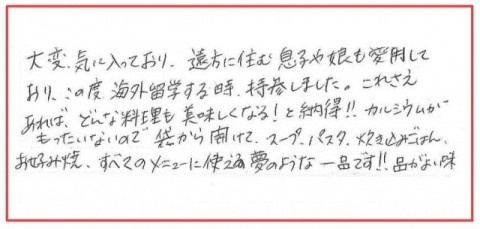 大変気に入っており、遠方に住む息子や娘も愛用して
おり、この度海外留学する時、持参しました。これさえ
あれば、どんな料理も美味しくなる！と納得!! カルシウムが
もったいないので袋から開けて、スープ、パスタ、炊き込みごはん、
お好み焼、すべてのメニューに使える夢のような一品です!! 品がよい味